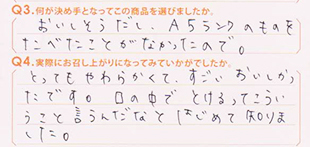 Q3.何が決め手となってこの商品を選びましたか。
おいしそうだし、A5ランクのものを
たべたことがなかったので。
Q4.実際にお召し上がりになってみていかがでしたか。
とってもやわらかくて、すごいおいしかっ
たです。口の中でとけるってこうい
うこと言うんだなとはじめて知りま
した。